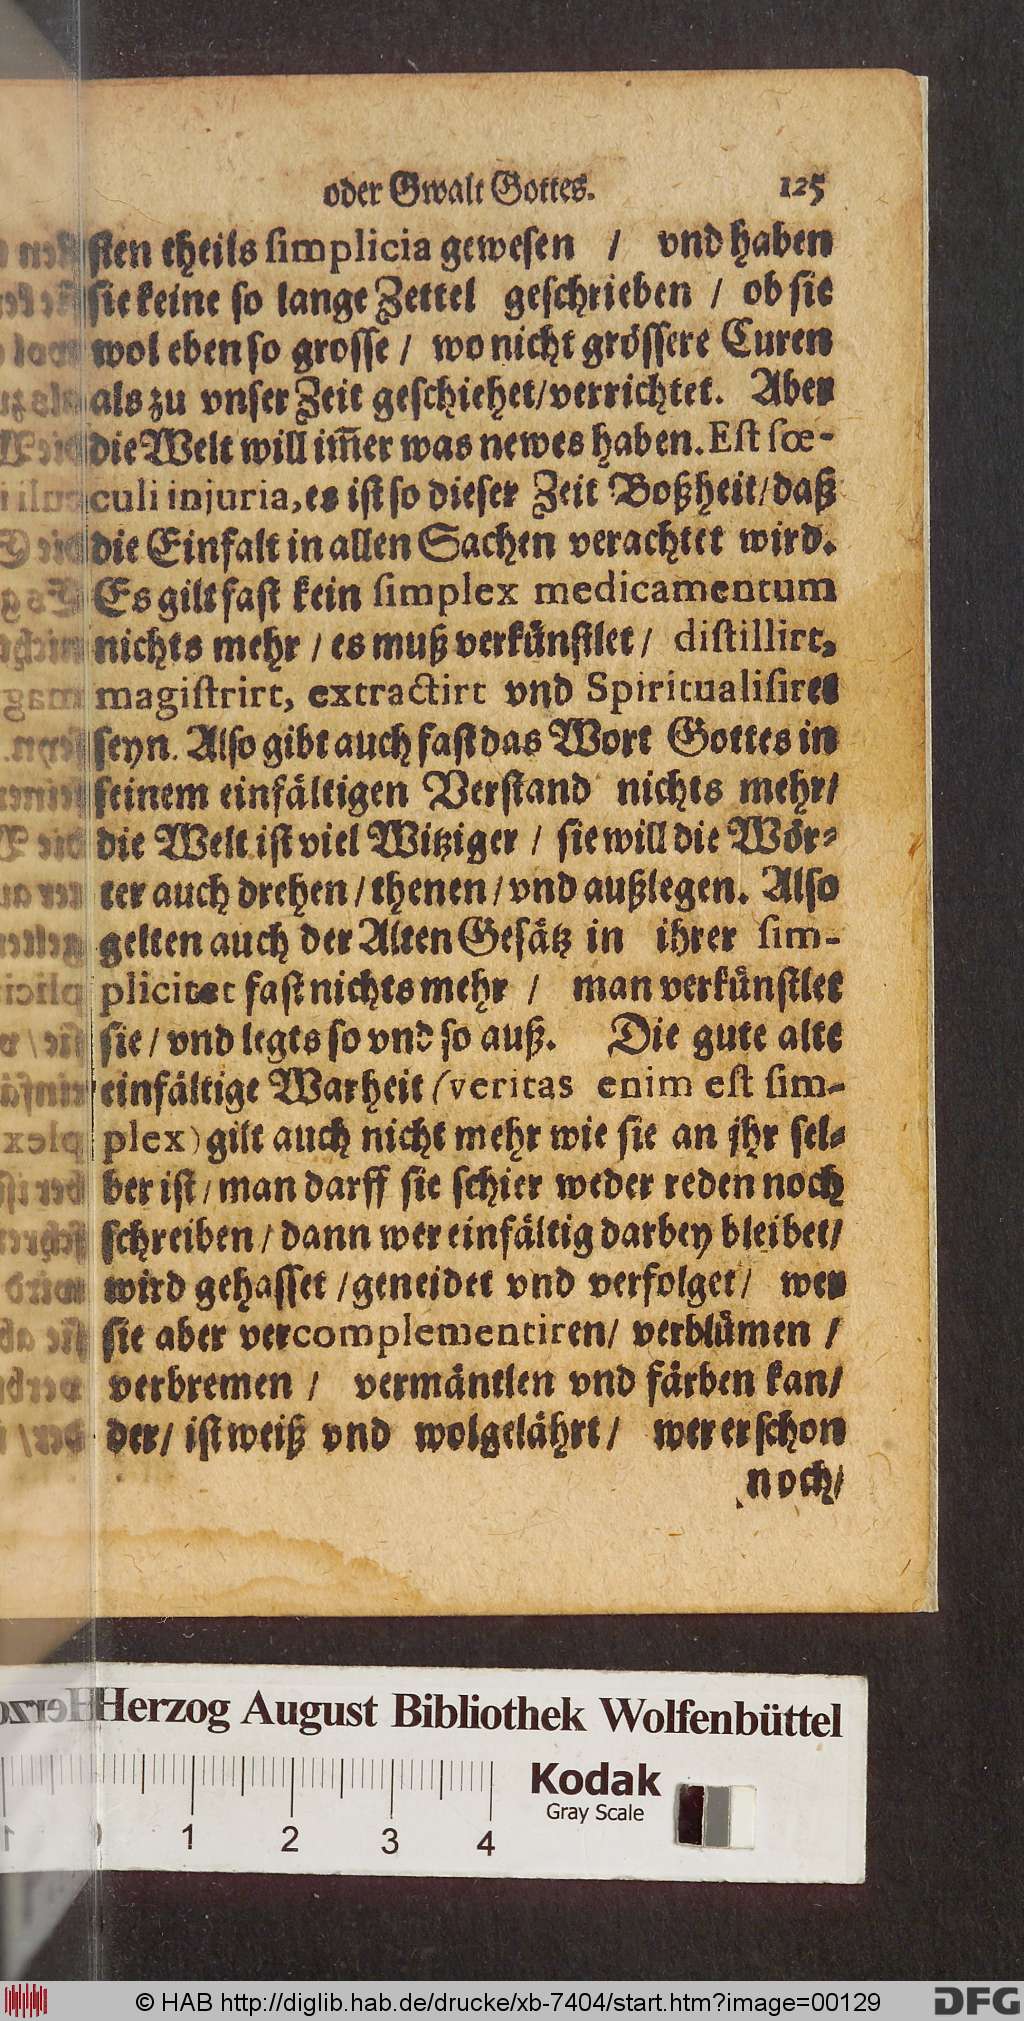 oder Gwalt Gottes. 125
sten theils simplicia gewesen / vnd haben
sie keine so lange Zettel geschrieben / ob sie
wol eben so grosse / wo nicht grössere Curen
als zu vnser Zeit geschiehet/verrichtet. Aber
die Welt will im̃er was newes haben. Est sœ-
culi injuria, es ist so dieser Zeit Boßheit/daß
die Einfalt in allen Sachen verachtet wird.
Es gilt fast kein simplex medicamentum
nichts mehr / es muß verkünstlet / distillirt,
magistrirt, extractirt vnd Spiritualisiret
seyn. Also gibt auch fast das Wort Gottes in
seinem einfältigen Verstand nichts mehr/
die Welt ist viel Witziger / sie will die Wör-
ter auch drehen / thenen / vnd außlegen. Also
gelten auch der Alten Gesätz in ihrer sim-
plicitet fast nichts mehr / man verkünstlet
sie / vnd legts so vnd so auß. Die gute alte
einfältige Warheit (veritas enim est sim-
plex) gilt auch nicht mehr wie sie an jhr sel-
ber ist / man darff sie schier weder reden noch
schreiben / dann wer einfältig darbey bleibet/
wird gehasset / geneidet vnd verfolget / wer
sie aber vercomplementiren/ verblümen /
verbremen / vermäntlen vnd färben kan/
der/ ist weiß vnd wolgelährt / wer er schon
noch/
Herzog August Bibliothek Wolfenbüttel
Kodak
Gray Scale
1 2 3 4
© HAB http://diglib.hab.de/drucke/xb-7404/start.htm?image=00129
DFG